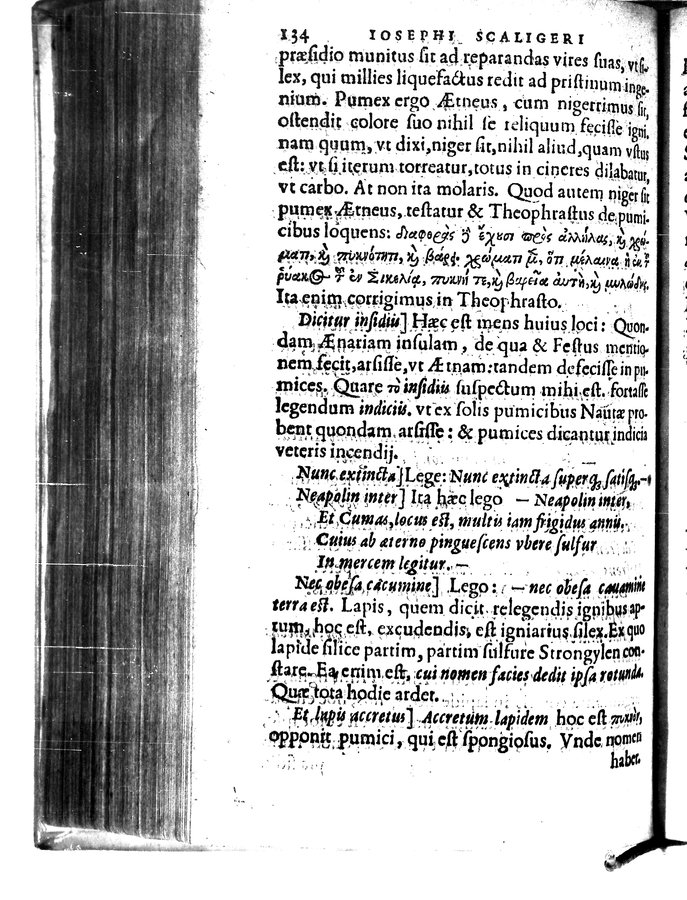 134 IOSEPHI SCALIGERI
præsidio munitus sit ad reparandas vires suas, vt si-
lex, qui millies liquefactus redit ad pristinum inge-
nium. Pumex ergo Ætneus, cum nigerrimus sit,
ostendit colore suo nihil se reliquum fecisse igni.
nam quum, vt dixi, niger sit, nihil aliud, quam vstus
est: vt si iterum torreatur, totus in cineres dilabatur,
vt carbo. At non ita molaris. Quod autem niger sit
pumex Ætneus, testatur & Theophrastus de pumi-
cibus loquens: διαφορὰς ἢ ἔχουσι πρὸς ἀλλήλας, καὶ χρώ-
ματι, καὶ πυκνότητι, καὶ βάρει. χρώματι μὲν, ὅτι μέλαινα ἡ ἐκ τοῦ
ῥύακος τοῦ ἐν Σικελίᾳ, πυκνή τε, καὶ βαρεῖα αὐτὴ, καὶ μυλώδης.
Ita enim corrigimus in Theophrasto.
Dicitur insidiis] Hæc est mens huius loci: Quon-
dam Ænariam insulam, de qua & Festus mentio-
nem fecit, arsisse, vt Ætnam: tandem defecisse in pu-
mices. Quare τὸ insidiis suspectum mihi est. fortasse
legendum indiciis. vt ex solis pumicibus Nautæ pro-
bent quondam arsisse: & pumices dicantur indicia
veteris incendij.
Nunc extincta] Lege: Nunc extincta superq; satisq;. —
Neapolin inter] Ita hæc lego — Neapolin inter,
Et Cumas, locus est, multis iam frigidus annis.
Cuius ab æterno pinguescens vbere sulfur
In mercem legitur. —
Nec obesa cacumine] Lego: — nec obesa cauamine
terra est. Lapis, quem dicit relegendis ignibus ap-
tum, hoc est, excudendis, est igniarius silex. Ex quo
lapide silice partim, partim sulfure Strongylen con-
stare. Ea enim est, cui nomen facies dedit ipsa rotunda.
Quæ tota hodie ardet.
Et lapis accretus] Accretum lapidem hoc est πυκνὸν,
opponit pumici, qui est spongiosus. Vnde nomen
habet.